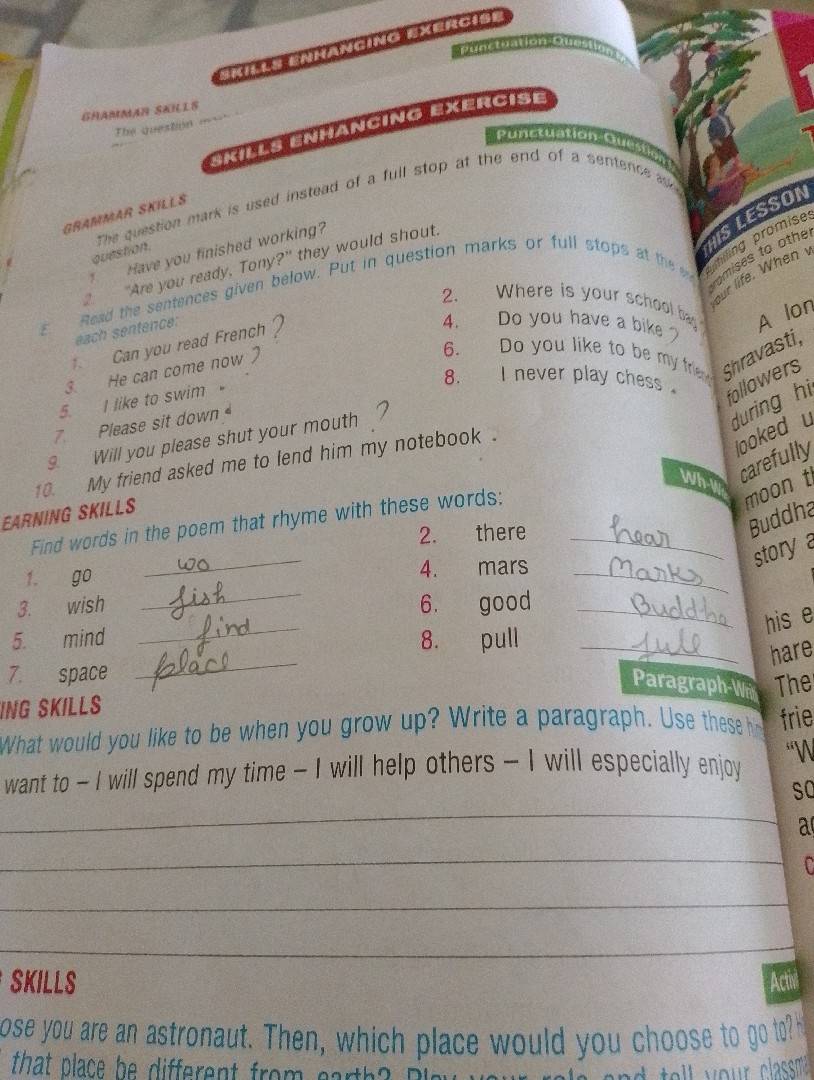 SKILLS ENHANCING EXERCISE
Punctuation-Question
GRAMMAR SKILLS
The question
SKILLS ENHANCING EXERCISE
Punctuation-Question
GRAMMAR SKILLS
The question mark is used instead of a full stop at the end of a sentence
question.
1. Have you finished working?
2. "Are you ready, Tony?" they would shout.
E. Read the sentences given below. Put in question marks or full stops at the
each sentence:
1. Can you read French ?
2. Where is your school bag
3. He can come now ?
4. Do you have a bike ?
5. I like to swim .
6. Do you like to be my
7. Please sit down .
8. I never play chess .
9. Will you please shut your mouth ?
10. My friend asked me to lend him my notebook .
EARNING SKILLS
Wh-W
Find words in the poem that rhyme with these words:
1. go wo
2. there hear
3. wish fish
4. mars Marks
5. mind find
6. good Buddha
7. space place
8. pull full
ING SKILLS
Paragraph-Wri
What would you like to be when you grow up? Write a paragraph. Use these
want to – I will spend my time – I will help others – I will especially enjoy
SKILLS
Activi
ose you are an astronaut. Then, which place would you choose to go to?
that place be different from earth? your classma
THIS LESSON
promises
promises to other
your life. When
A lon
Shravasti,
followers
during hi
looked u
carefully
moon t
Buddha
story a
his e
hare
The
frie
"W
so
a